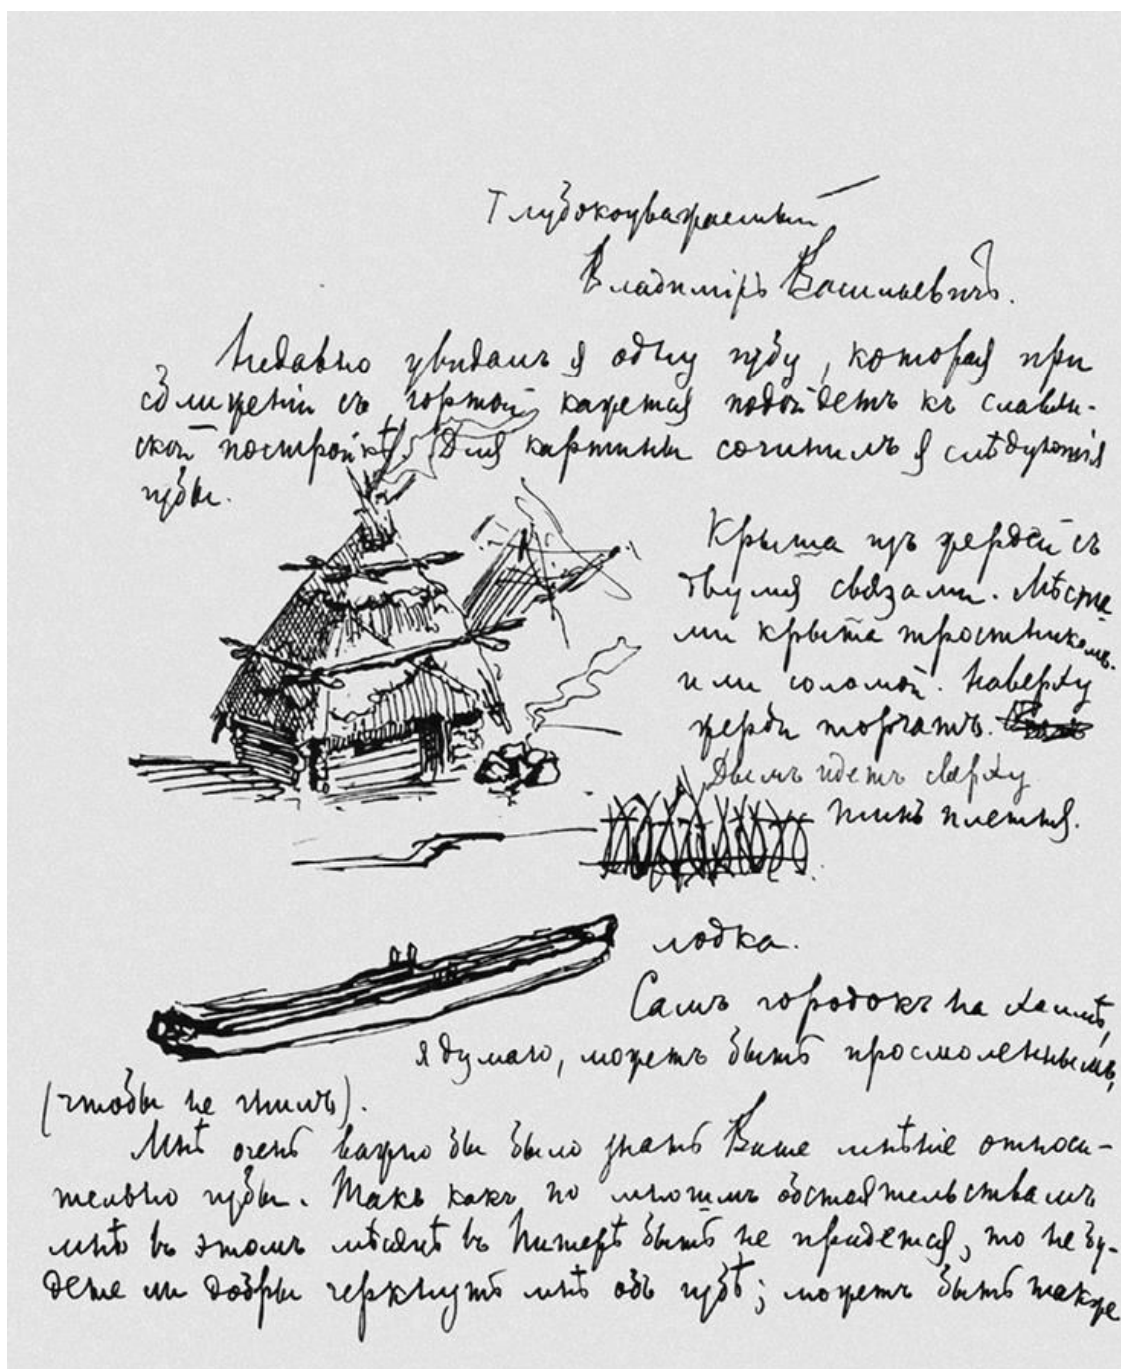 Глубокоуважаемый
Владиміръ Васильевичъ.
Недавно увидалъ я одну избу, которая при
сближеніи съ юртой кажется подойдетъ къ славян-
ской постройкѣ. Для картины сочинилъ я слѣдующія
избы.
Крыша изъ жердей съ
двумя связами. Мѣста
ми крыта тростникомъ
или соломой. Наверху
жерди торчатъ.
Дымъ идетъ сверху
тынъ плетня.
лодка.
Самъ городокъ на холмѣ,
я думаю, можетъ быть просмоленнымъ,
(чтобы не гнилъ).
Мнѣ очень важно бы было знать Ваше мнѣніе относи-
тельно избы. Такъ какъ по многимъ обстоятельствамъ
мнѣ въ этомъ мѣсяцѣ въ Питерѣ быть не придется, то не бу-
дете ли добры черкнуть мнѣ объ избѣ; можетъ быть также